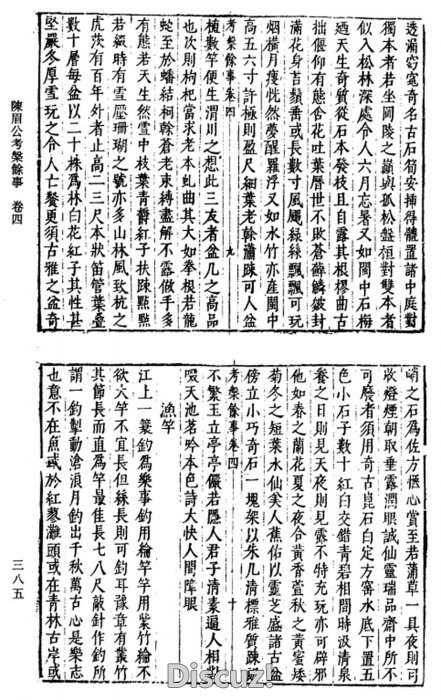 透漏窈窕奇名古石筍安揷得體置諸中庭對
獨本者若坐岡陵之巔與孤松盤桓對雙本者
似入松林深處令人六月忘暑又如閩中石梅
廼天生奇質從石本發枝且自露其根樛曲古
拙偃仰有態含花吐葉歷世不敗蒼蘚鱗皴封
滿花身苔鬚垂或長數寸風颺綠絲飄飄可玩
烟橫月瘦恍然夢醒羅浮又如水竹亦產閩中
高五六寸許極則盈尺細葉老幹瀟踈可人盆
考槃餘事卷四 九
植數竿便生渭川之想此三友者盆几之高品
也次則枸杞當求老本虬曲其大如拳根若龍
蛇至於蟠結柯榦蒼老束縛盡解不露做手多
有態若天生然雪中枝葉青鬱紅子扶踈點點
若綴時有雪壓珊瑚之號亦多山林風致杭之
虎茨有百年外者止高二三尺本狀笛管葉疊
數十層每盆以二十株爲林白花紅子其性甚
堅嚴冬厚雪玩之令人亡餐更須古雅之盆奇
陳眉公考槃餘事 卷四
峭之石爲佐方愜心賞至若蒲草一具夜則可
收燈煙朝取垂露潤眼誠仙靈瑞品齋中所不
可廢者須用奇古崑石白定方窑水底下置五
色小石子數十紅白交錯青碧相間時汲清泉
養之日則見天夜則見露不特充玩亦可辟邪
他如春之蘭花夏之夜合黃香萱秋之黃蜜矮
菊冬之短葉水仙美人蕉佑以靈芝盛諸古盆
傍立小巧奇石一塊架以朱几清標雅質踈
考槃餘事卷四 十
不繁玉立亭亭儼若隱人君子清素逼人相對
啜天池茗吟本色詩大快人間障眼
漁竿
江上一簑釣爲樂事釣用綸竿竿用紫竹綸不
欲大竿不宜長但絲長則可釣耳豫章有叢竹
其節長而直爲竿最佳長七八尺敲針作釣所
謂一釣掣動滄浪月釣出千秋萬古心是樂志
也意不在魚或於紅蓼灘頭或在青林古岸或
三八五
Discuz!